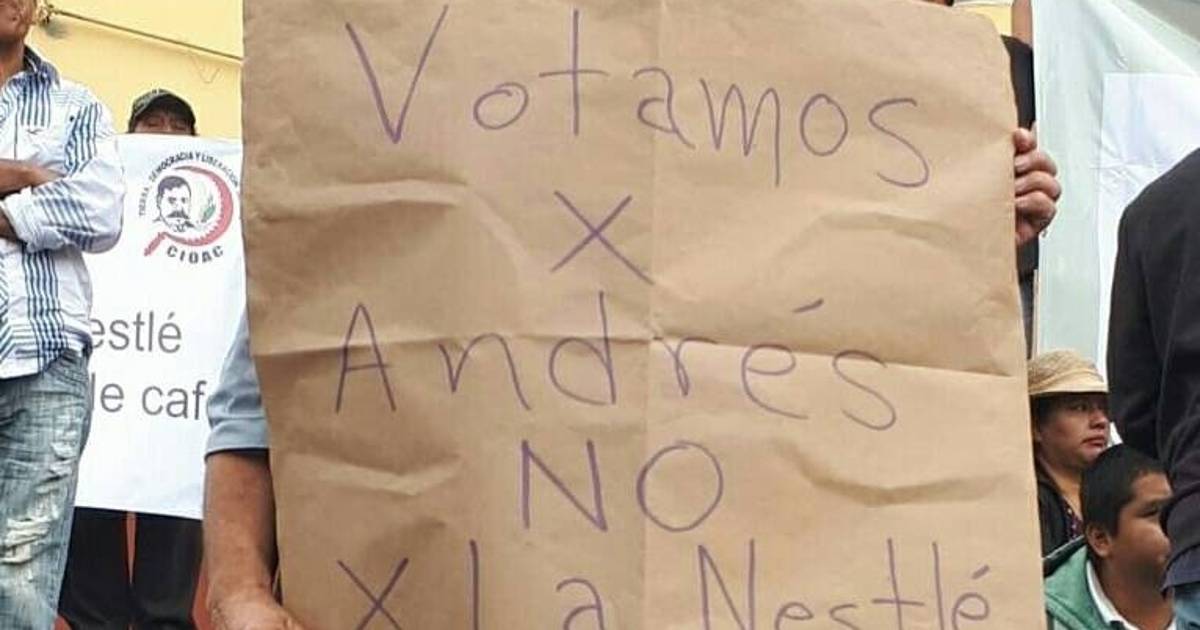 Votamos
X
Andrés
NO
X La Nestlé
TIERRA, DEMOCRACIA Y LIBERACIÓN
CIOAC
estlé
de caf